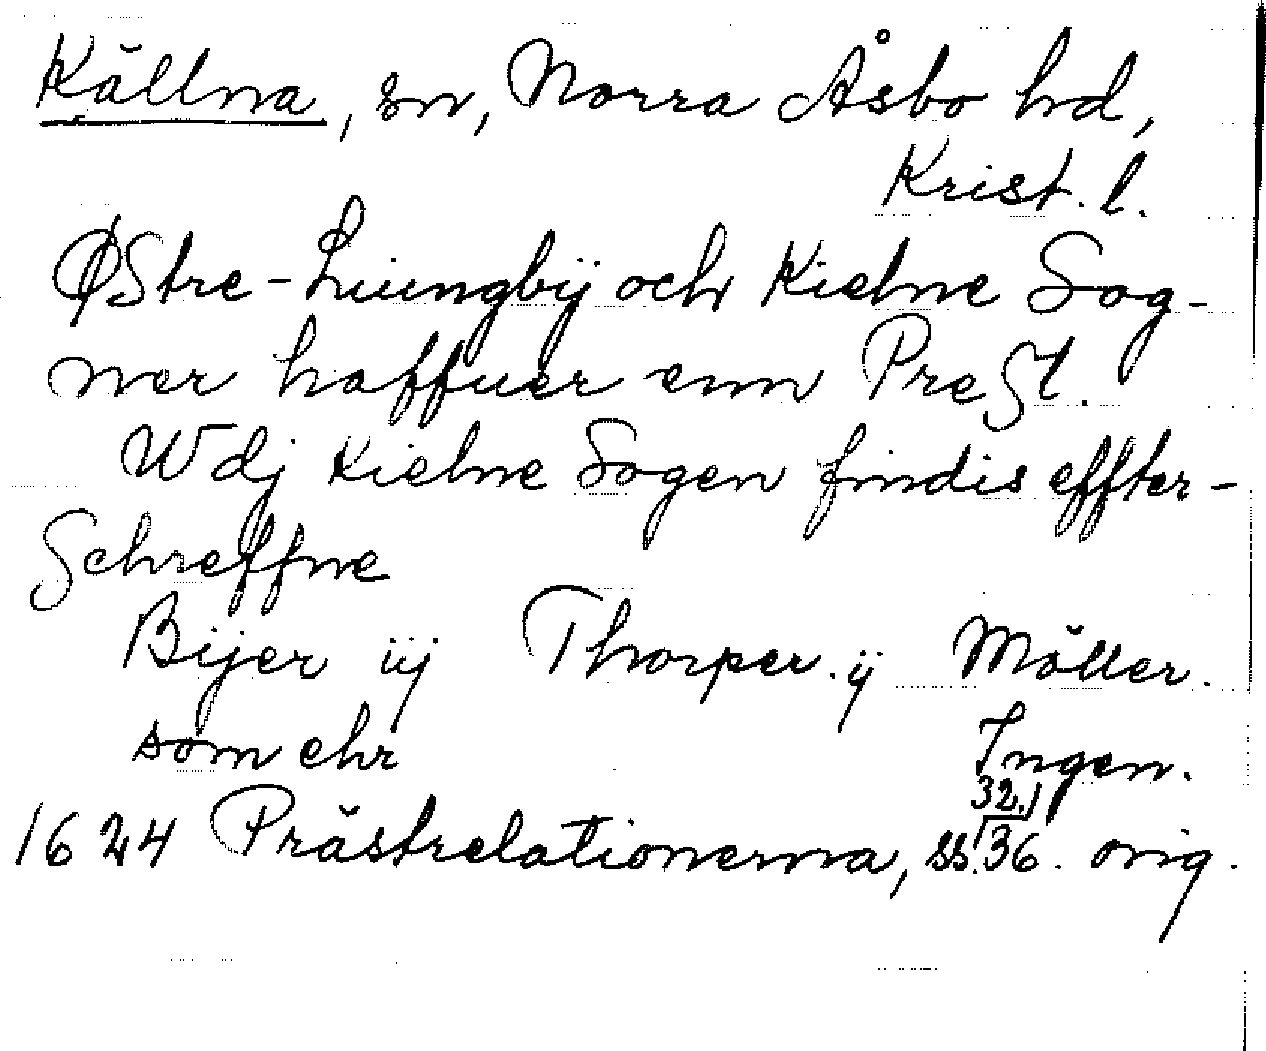 Källna, sn, Norra Åsbo hd,
Krist. l.
ØStre-Liungbÿ och Kielne Sog-
ner haffuer enn PreSt.
Wdj Kielne Sogen findis effter-
Schreffne
Bÿer iij Thorper. ij Möller.
som ehr Ingen.
32.
1624 Prästrelationerna, ss. 36. orig.